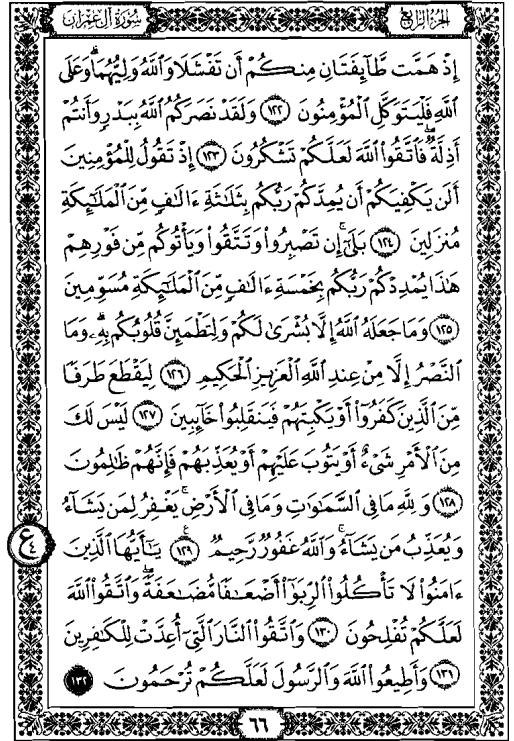 الجزء الرابع سورة آل عمران
إِذْ هَمَّت طَّآئِفَتَانِ مِنكُمْ أَن تَفْشَلَا وَٱللَّهُ وَلِيُّهُمَا ۗ وَعَلَى
ٱللَّهِ فَلْيَتَوَكَّلِ ٱلْمُؤْمِنُونَ ١٢٢ وَلَقَدْ نَصَرَكُمُ ٱللَّهُ بِبَدْرٍ وَأَنتُمْ
أَذِلَّةٌ ۖ فَٱتَّقُوا۟ ٱللَّهَ لَعَلَّكُمْ تَشْكُرُونَ ١٢٣ إِذْ تَقُولُ لِلْمُؤْمِنِينَ
أَلَن يَكْفِيَكُمْ أَن يُمِدَّكُمْ رَبُّكُم بِثَلَـٰثَةِ ءَالَـٰفٍ مِّنَ ٱلْمَلَـٰٓئِكَةِ
مُنزَلِينَ ١٢٤ بَلَىٰٓ ۚ إِن تَصْبِرُوا۟ وَتَتَّقُوا۟ وَيَأْتُوكُم مِّن فَوْرِهِمْ
هَـٰذَا يُمْدِدْكُمْ رَبُّكُم بِخَمْسَةِ ءَالَـٰفٍ مِّنَ ٱلْمَلَـٰٓئِكَةِ مُسَوِّمِينَ
١٢٥ وَمَا جَعَلَهُ ٱللَّهُ إِلَّا بُشْرَىٰ لَكُمْ وَلِتَطْمَئِنَّ قُلُوبُكُم بِهِۦ ۗ وَمَا
ٱلنَّصْرُ إِلَّا مِنْ عِندِ ٱللَّهِ ٱلْعَزِيزِ ٱلْحَكِيمِ ١٢٦ لِيَقْطَعَ طَرَفًا
مِّنَ ٱلَّذِينَ كَفَرُوٓا۟ أَوْ يَكْبِتَهُمْ فَيَنقَلِبُوا۟ خَآئِبِينَ ١٢٧ لَيْسَ لَكَ
مِنَ ٱلْأَمْرِ شَىْءٌ أَوْ يَتُوبَ عَلَيْهِمْ أَوْ يُعَذِّبَهُمْ فَإِنَّهُمْ ظَـٰلِمُونَ
١٢٨ وَلِلَّهِ مَا فِى ٱلسَّمَـٰوَٰتِ وَمَا فِى ٱلْأَرْضِ ۚ يَغْفِرُ لِمَن يَشَآءُ
وَيُعَذِّبُ مَن يَشَآءُ ۚ وَٱللَّهُ غَفُورٌ رَّحِيمٌ ١٢٩ يَـٰٓأَيُّهَا ٱلَّذِينَ
ءَامَنُوا۟ لَا تَأْكُلُوا۟ ٱلرِّبَوٰٓا۟ أَضْعَـٰفًا مُّضَـٰعَفَةً ۖ وَٱتَّقُوا۟ ٱللَّهَ
لَعَلَّكُمْ تُفْلِحُونَ ١٣٠ وَٱتَّقُوا۟ ٱلنَّارَ ٱلَّتِىٓ أُعِدَّتْ لِلْكَـٰفِرِينَ
١٣١ وَأَطِيعُوا۟ ٱللَّهَ وَٱلرَّسُولَ لَعَلَّكُمْ تُرْحَمُونَ ١٣٢
٦٦